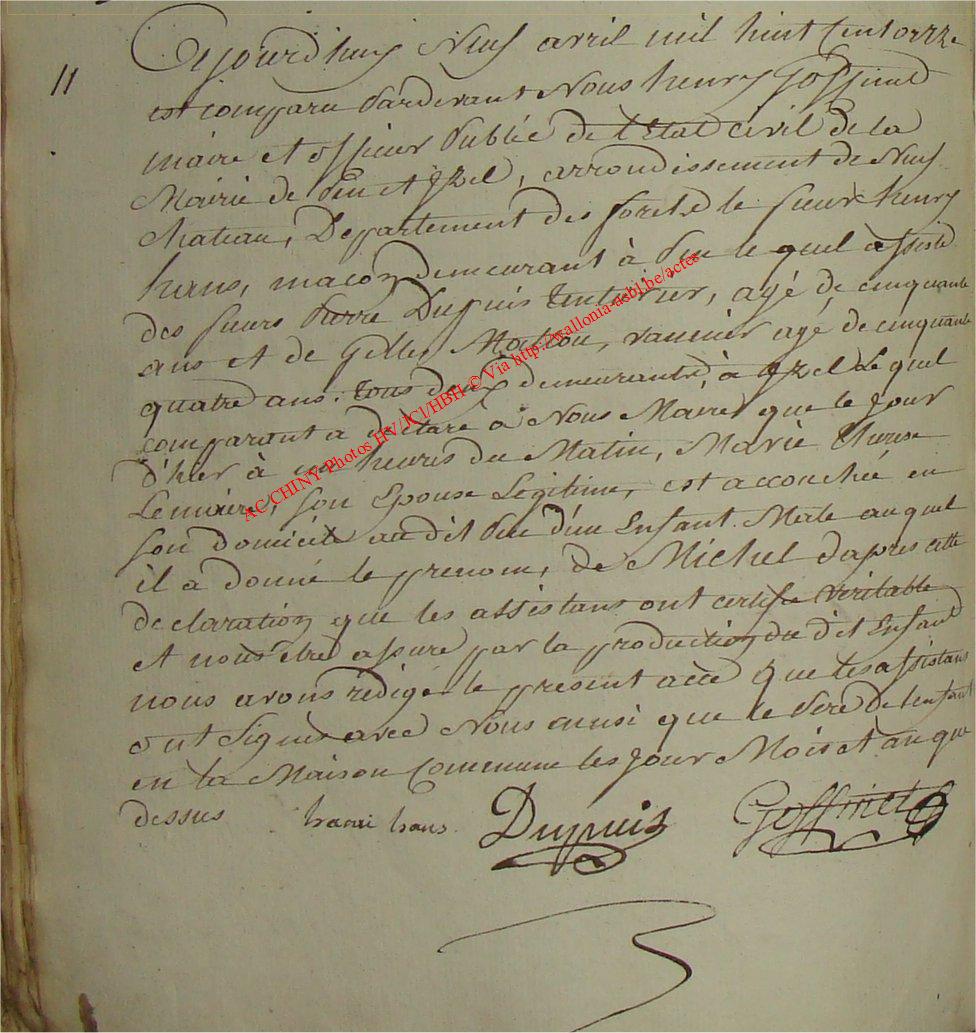 11
Cejourd'huy Neuf avril mil huit Cent onze
est comparu Pardevant Nous henry Goffinet
maire et officier Public de l'Etat civil de la
Mairie de Pin et Izel, arrondissement de Neuf
chateau, Departement des forets le sieur henry
hans, maçon demeurant à Pin le quel assisté
des sieurs Pierre Dupuis Tenturier, agé de cinquante
ans et de Gilles Moulou, vannier agé de cinquante
quatre ans. tous deux demeurants, à Izel Le quel
comparant a déclaré à Nous Maire que le Jour
d'hier à heures du Matin, Marie therese
Lemaire, son Epouse Legitime, est accouchée en
son domicile au dit Pin d'un Enfant Male auquel
il a donné le prenom, de Michel dapres cette
declaration que les assistans ont certifié veritable
et nous etre assuré par la production du dit Enfant
nous avons rédigé le present acte que les assistans
ont Signés avec Nous ainsi que le Pere de lenfant
en la Maison Commune les Jour Mois et an que
dessus henri hans Dupuis Goffinet
AC CHINY Photos HV/JCl/HBH © Via http://wallonia-asbl.be/actes